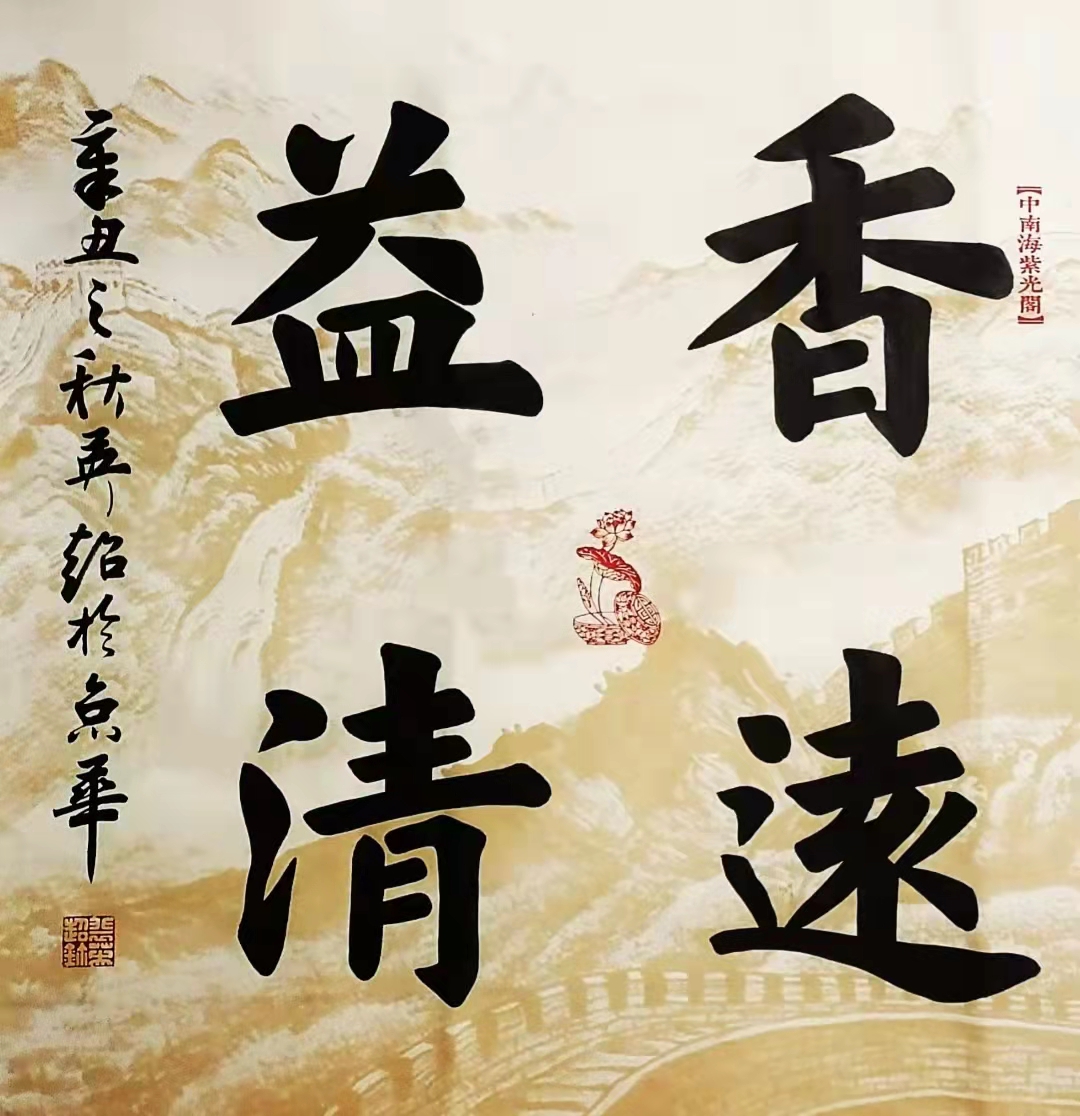 【中南海紫光閣】
香遠
益清
辛丑之秋超於京華